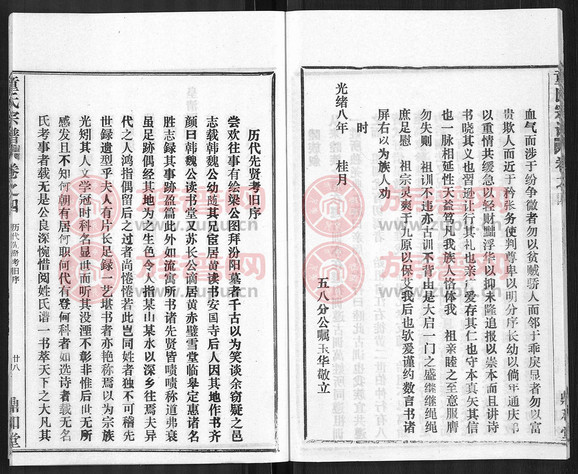 血气而涉于纷争微者勿以贫贱骄人而显者勿以富
贵欺人而近于矜张务使判尊卑以明分序长幼以倘年通庆吊
以重情共缓急以轻财黜浮华以抑末隆追报以崇本而且讲诗
书晓其义也习逊让行其礼也亲仁爱存其仁也守本真矢其信
也一脉相延性天益笃凡我族人恪体我 祖亲睦之至意服膺
勿失则 祖训不违亦古训不背由是大启一门之盛继继绳绳
庶足慰 祖宗灵爽于九原以保艾我后也钦爱谨约数言书诸
屏右以为族人劝
时
光绪八年 桂月
五八分公嘱玉华敬立
历代先贤考旧序
尝欢往事有绘梁公图拜汾阳墓者千古以为笑谈余窃疑之邑
志载韩魏公幼随其兄宦居黄读书安国寺后人因其地作书斋
颜曰韩魏公读书堂又苏长公谪居黄赤壁雪堂临皋定惠诸名
胜志录其事迹盈篇此外如流寓所书诸先贤皆啧啧称道弗衰
虽足迹偶经其地为之生色令人指某山某水以深乡往焉夫异
代之人鸿指偶留后之过者尚惓惓若此岂同姓者独不可稽先
世录遗型乎夫人有片长足录一艺堪书者亦艳称焉以为宗族
光矧其人文学冠时科名显世而听其没湮不彰非惟后世无所
感发且不知何朝有居何职何代有登何科者如选诗者载无名
氏考事者载无是公良深惋惜阅姓氏谱一书萃天下之大凡其
童氏宗谱 卷之四 历代先贤考旧序 廿八 鼎和堂